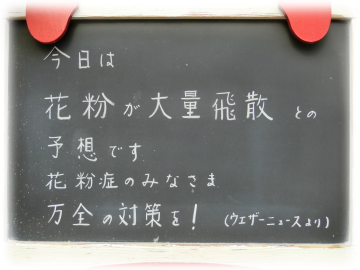 今日は
花粉が大量飛散との
予想です
花粉症のみなさま
万全の対策を！（ウェザーニュースより）